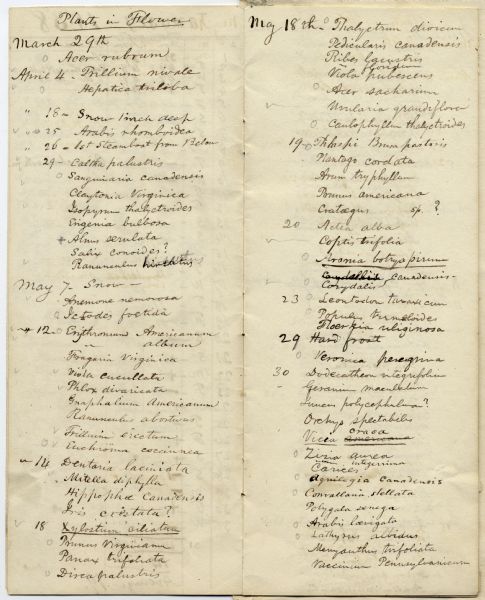 Plants in Flower
March 29th
Acer rubrum
April 4 - Trillium nivale
Hepatica triloba
" 18 - Snow 1 inch deep
" 25 Arabis rhomboidea
" 26 - 1st Steamboat from Below
29 - Caltha palustris
Sanguinaria canadensis
Claytonia Virginica
Isopyrum thalyctroides
Erigenia bulbosa
Alnus serulata
Salix conoides?
Ranunculus
May 7 - Snow -
Anemone nemorosa
Ictodes foetida
" 12 - Erythronium Americanum
" album
Fragaria Virginica
Viola cucullata
Phlox divaricata
Gnaphalium Americanum
Ranunculus abortivus
Trillium erectum
Euchroma coccinea
" 14 Dentaria laciniata
Mitella diphylla
Hippophae Canadensis
Iris cristata?
" 18 Xylosteum ciliatum
Prunus Virginiana
Panax trifoliata
Dirca palustris
May 18th - Thalyctrum dioicum
Pedicularis canadensis
Ribes lacustris
floridum
Viola pubescens
Acer sacharinum
Uvularia grandiflora
Caulophyllum thalyctroides
19 - Thlaspi Bursa pastoris
Plantago cordata
Arum tryphyllum
Prunus americana
Crataegus sp. ?
20 Actea alba
Coptis trifolia
Aronia botryapium
Corydallis canadensis -
Corydalis
23 Leontodon taraxicum
Populus tremuloides
Floerkia uliginosa
29 Hard frost
Veronica peregrina
30 Dodecatheon integrifolium
Geranium maculatum
Juncus polycephalus?
Orchys spectabilis
craca
Vicia Americana
Zizia aurea
integerrima
Carices
Aquilegia canadensis
Convallaria stellata
Polygala senega
Arabis laevigata
Lathyrus albidus
Menyanthus trifoliata
Vaccinium Pennsylvanicum